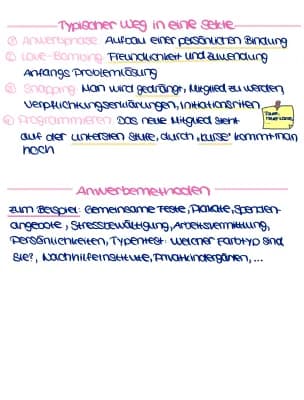 Typischer Weg in eine Sekte
① Anwerbephase Aufbau einer persönlichen Bindung
② Love-Bombing Freundlichkeit und Zuwendung
Anfangs Problemlösung
③ Snapping Man wird gedrängt, Mitglied zu werden
Verpflichtungserklärungen, Initiationsriten
④ Programmieren Das neue Mitglied steht
auf der untersten Stufe, durch „Kurse" kommt man
hoch
Anwerbemethoden
Zum Beispiel: Gemeinsame Feste, Plakate, Spenden-
angebote, Stressbewältigung, Arbeitsvermittlung,
Persönlichkeiten, Typentest: Welcher Farbtyp sind
Sie?, Nachhilfeinstitute, Privatkindergärten, ...